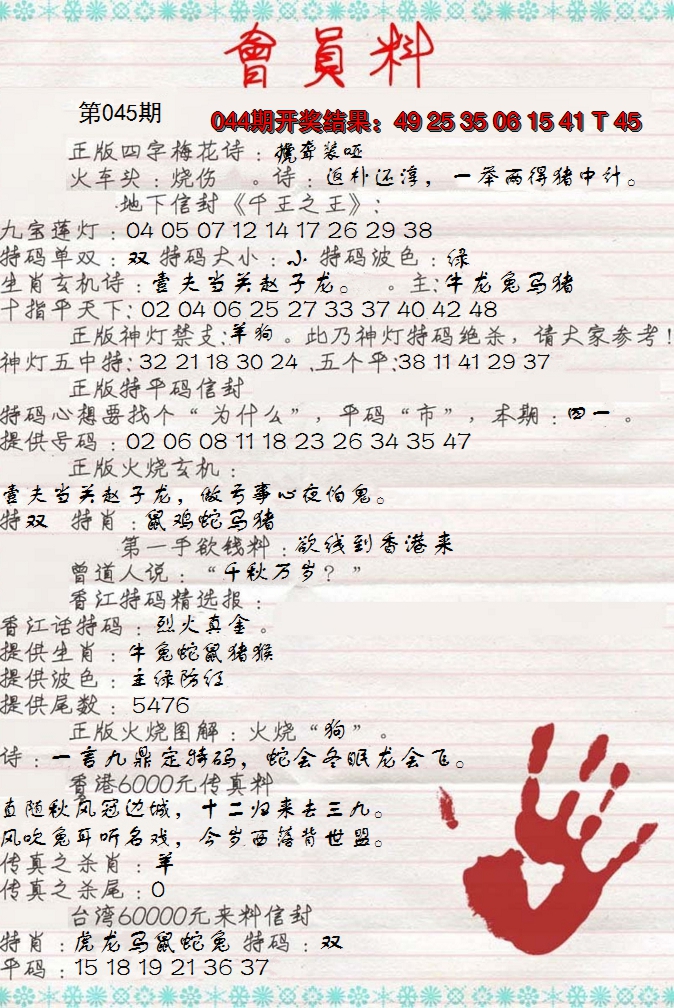 會員料
第045期
044期开奖结果：49 25 35 06 15 41 T 45
正版四字梅花诗：搀聋装哑
火车头：烧伤　。诗：返朴还淳，一举两得猪中计。
地下信封《千王之王》：
九宝莲灯：04 05 07 12 14 17 26 29 38
特码单双：双 特码大小：小 特码波色：绿
生肖玄机诗：壹夫当关赵子龙。　。主：牛龙兔马猪
十指平天下：02 04 06 25 27 33 37 40 42 48
正版神灯禁支：羊狗。此乃神灯特码绝杀，请大家参考！
神灯五中特：32 21 18 30 24 .五个平：38 11 41 29 37
正版特平码信封
特码心想要找个“为什么”，平码“市”，本期：四一 。
提供号码：02 06 08 11 18 23 26 34 35 47
正版火烧玄机：
壹夫当关赵子龙，做亏事心夜怕鬼。
特双　特肖：鼠鸡蛇马猪
第一手欲钱料：欲钱到香港来
曾道人说：“千秋万岁？”
香江特码精选报：
香江话特码：烈火真金。
提供生肖：牛兔蛇鼠猪猴
提供波色：主绿防红
提供尾数：5476
正版火烧图解：火烧“狗”。
诗：一言九鼎定特码，蛇会冬眠龙会飞。
香港6000元传真料
直随秋风冠边城，十二归来去三九。
风吹兔耳听名戏，今岁西落背世盟。
传真之杀肖：羊
传真之杀尾：0
台湾60000元来料信封
特肖：虎龙马鼠蛇兔 特码：双
平码：15 18 19 21 36 37